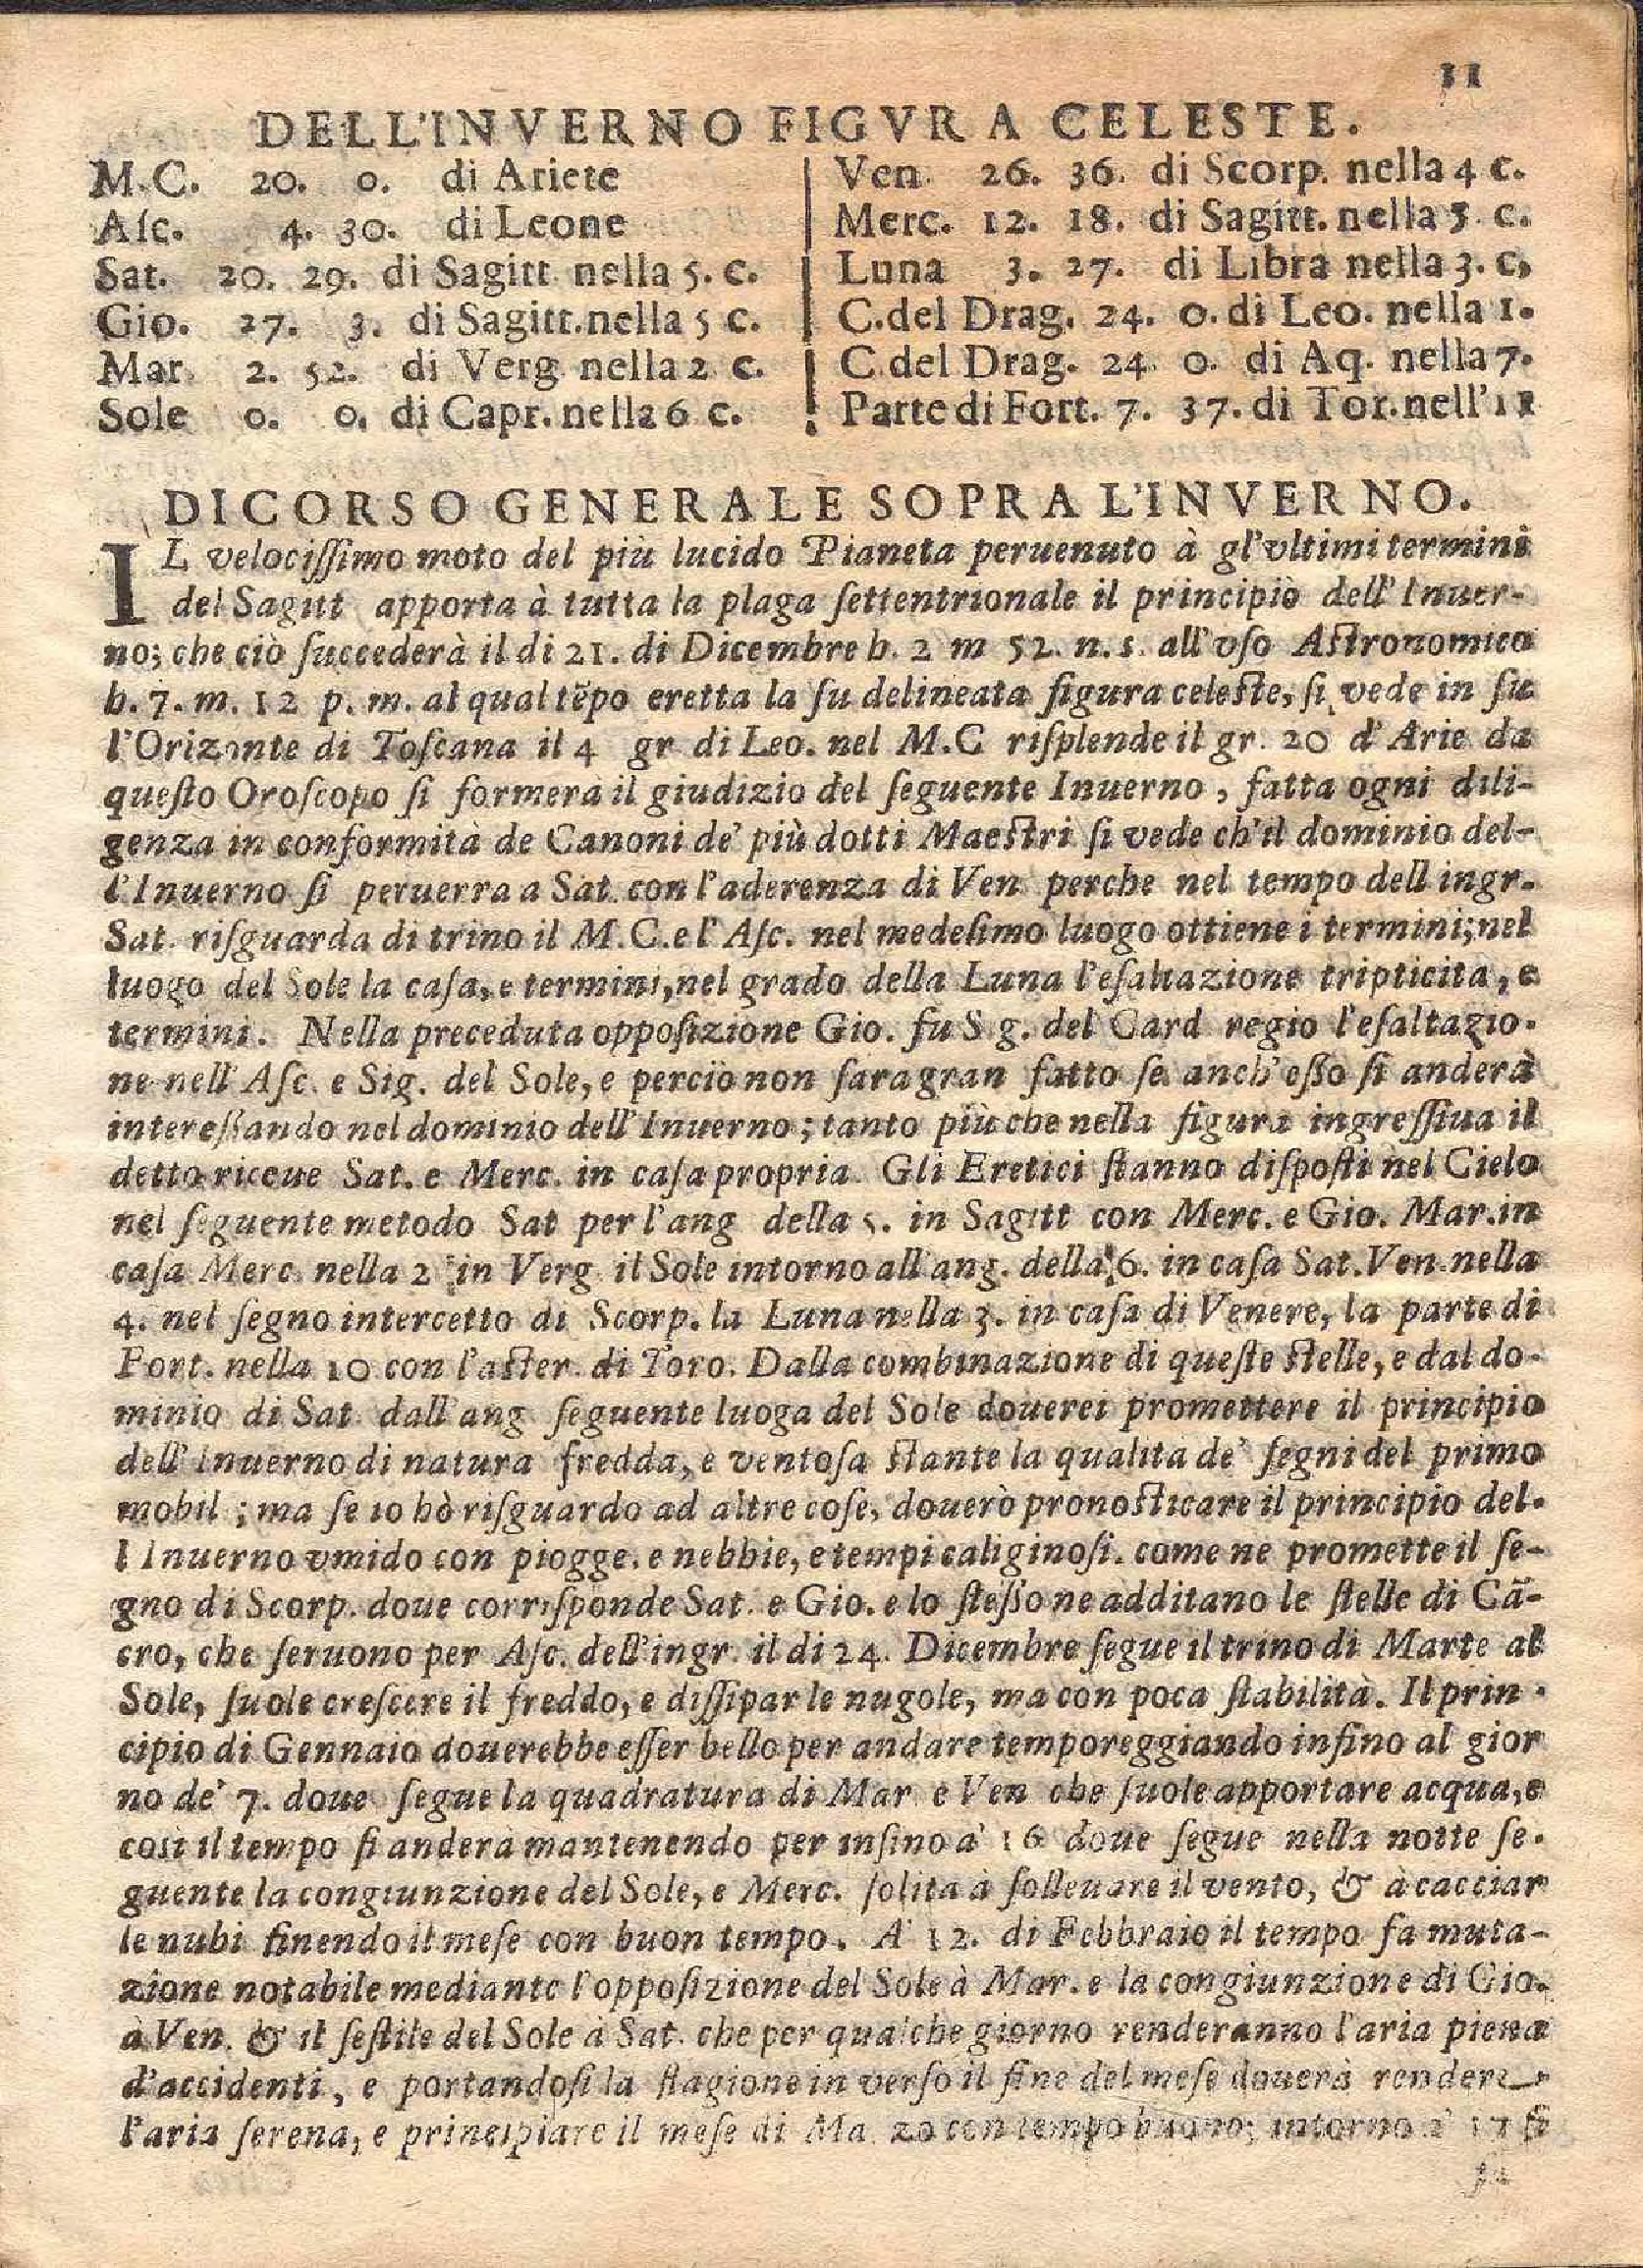 11
DELL'INVERNO FIGVRA CELESTE.
M.C. 20. 0. di Ariete
Asc. 4. 30. di Leone
Sat. 20. 29. di Sagitt. nella 5. c.
Gio. 27. 3. di Sagitt. nella 5 c.
Mar. 2. 52. di Verg. nella 2 c.
Sole 0. 0. di Capr. nella 6 c.
Ven. 26. 36. di Scorp. nella 4 c.
Merc. 12. 18. di Sagitt. nella 5 c.
Luna 3. 27. di Libra nella 3. c,
C.del Drag. 24. 0. di Leo. nella 1.
C.del Drag. 24. 0. di Aq. nella 7.
Parte di Fort. 7. 37. di Tor. nell'11
DICORSO GENERALE SOPRA L'INVERNO.
IL velocissimo moto del più lucido Pianeta peruenuto à gl'vltimi termini
del Sagitt apporta à tutta la plaga settentrionale il principiò dell'Inuer-
no; che ciò succederà il di 21. di Dicembre h. 2 m 52. n. s. all'vso Astronomico
h. 7. m. 12 p. m. al qual tẽpo eretta la su delineata figura celeste, si vede in su
l'Orizonte di Toscana il 4 gr di Leo. nel M.C risplende il gr. 20 d'Arie da
questo Oroscopo si formerà il giudizio del seguente Inuerno, fatta ogni dili-
genza in conformità de Canoni de' più dotti Maestri si vede ch'il dominio del-
l'Inuerno si peruerra a Sat. con l'aderenza di Ven perche nel tempo dell ingr.
Sat. risguarda di trino il M.C. e l'Asc. nel medesimo luogo ottiene i termini; nel
luogo del Sole la casa, e termini, nel grado della Luna l'esaltazione tripticita, e
termini. Nella preceduta opposizione Gio. fu Sig. del Card regio l'esaltazio-
ne nell'Asc. e Sig. del Sole, e perciò non sara gran fatto se anch'esso si anderà
interessando nel dominio dell'Inuerno; tanto più che nella figura ingressiua il
detto riceue Sat. e Merc. in casa propria. Gli Eretici stanno disposti nel Cielo
nel seguente metodo Sat per l'ang della 5. in Sagitt con Merc. e Gio. Mar. in
casa Merc nella 2 in Verg. il Sole intorno all'ang. della 6. in casa Sat. Ven. nella
4. nel segno intercetto di Scorp. la Luna nella 3. in casa di Venere, la parte di
Fort. nella 10 con l'aster. di Toro. Dalla combinazione di queste stelle, e dal do-
minio di Sat dall'ang seguente luoga del Sole douerei promettere il principio
dell'Inuerno di natura fredda, e ventosa stante la qualità de' segni del primo
mobil; ma se io hò risguardo ad altre cose, douerò pronosticare il principio del-
l Inuerno vmido con piogge. e nebbie, e tempi caliginosi. come ne promette il se-
gno di Scorp. doue corrisponde Sat. e Gio. e lo stesso ne additano le stelle di Cã-
cro, che seruono per Asc. dell'ingr. il di 24. Dicembre segue il trino di Marte al
Sole, suole crescere il freddo, e dissipar le nugole, ma con poca stabilità. Il prin-
cipio di Gennaio douerebbe esser bello per andare temporeggiando insino al gior
no de' 7. doue segue la quadratura di Mar e Ven che suole apportare acqua, e
così il tempo si anderà mantenendo per insino a' 16 doue segue nella notte se-
guente la congiunzione del Sole, e Merc. solita à solleuare il vento, & à cacciar
le nubi finendo il mese con buon tempo. A' 12. di Febbraio il tempo fa muta-
zione notabile mediante l'opposizione del Sole à Mar. e la congiunzione di Gio.
à Ven. & il sestile del Sole à Sat. che per qualche giorno renderanno l'aria piena
d'accidenti, e portandosi la stagione in verso il fine del mese douerà rendere
l'aria serena, e principiare il mese di Ma zo con tempo buono; intorno a' 17 si